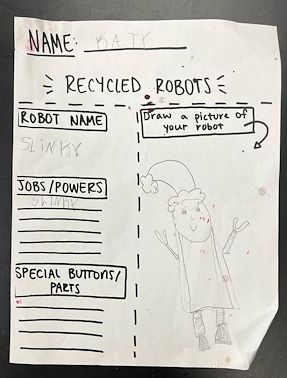 NAME: KATY
RECYCLED ROBOTS
ROBOT NAME
SLINKY
Draw a picture of
your robot
JOBS/POWERS
SLINKY
SPECIAL BUTTONS/
PARTS